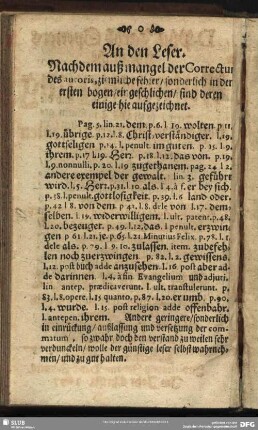 An den Leser.
Nachdem auß mangel der Correctur
des autoris, fehler/ sonderlich in der
ersten bogen/ ein geschlichen/ sind deren
einige hie aufgezeichnet.
Pag. 5. lin. 21. dem. p. 6. l 19. wolten. p 11.
l 19. übrige. p. 12. l 8. Christ. verständiger. l 19.
gottseligen p 14. l penult. im guten. p 15. l 9.
ihrem. p. 17 l 19. Herr. p 18. l 12. das von. p 19.
l 9. nonnulli. p 20. l 19 zugethanen. pag. 24 l 2.
andere exempel der gewalt. lin 3. geführt
wird. l 5. Herr. p 31. l 10. als. l 4 à f. er bey sich.
p 38. l penult. gottlosigkeit. p 39. l 6 land oder
p 42 l 8 von dem. p 43. l 8. dele von l 17. dem
selben. l 19. widerwilligem. l ult, patent. p. 48.
l 20. bezeuget. p 49. l 12. das. l penult. erzwin
gen p 61. l 21. je. p 65. l 22. Minutius Felix. p. 78. l 1.
dele als. p 79. l 9 10. zulassen. item. zubefeh
len noch zuerzwingen. p 82. l 2. gewissens.
l 12. post buch adde anzusehen. l. 16 post aber ad
de darinnen. l. 4. à fin Evangelium
lin antep. prædicaverunt. l ult. transtulerunt. p
83. l, 8. opere. l. 15 quanto. p. 87. l 20. er umb. p. 90,
l. 4. wurde. l. 15. post religion adde offenbahr.
l. antepen. ihrem. Andere geringere/ sonderlich
in einrückung/ außlassung und versetzung der com-
matum, so zwahr doch den verstand zu weilen sehr
verdunckeln/ wolle der günstige leser selbst wahrneh-
men/ und zu gut halten.
SLUB
DRESDEN
DFG